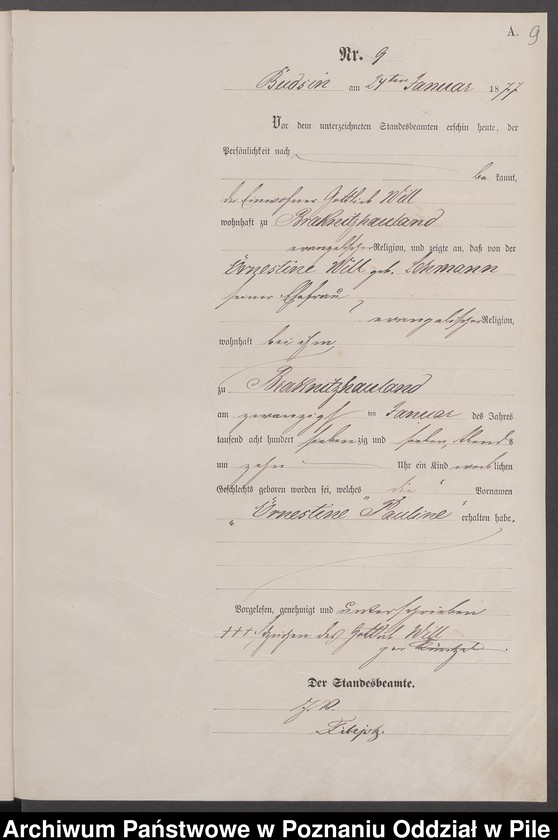 A. 9
Nr. 9
Budsin am 24ten Januar 1877
Vor dem unterzeichneten Standesbeamten erschien heute, der
Persönlichkeit nach
be kannt,
der Einwohner Gottlieb Will
wohnhaft zu Braknitzhauland
evangelischer Religion, und zeigte an, daß von der
Ernestine Will geb.
seiner Ehefrau
evangelischer Religion,
wohnhaft bei ihm
zu Braknitzhauland
am zwanzigsten Januar des Jahres
tausend acht hundert siebenzig und sieben, Abends
um zehn Uhr ein Kind weiblichen
Geschlechts geboren worden sei, welches die Vornamen
"Ernestine" "Pauline" erhalten habe.
Vorgelesen, genehmigt und unterschrieben
+++ des Gottlieb Will
Der Standesbeamte.
Archiwum Państwowe w Poznaniu Oddział w Pile